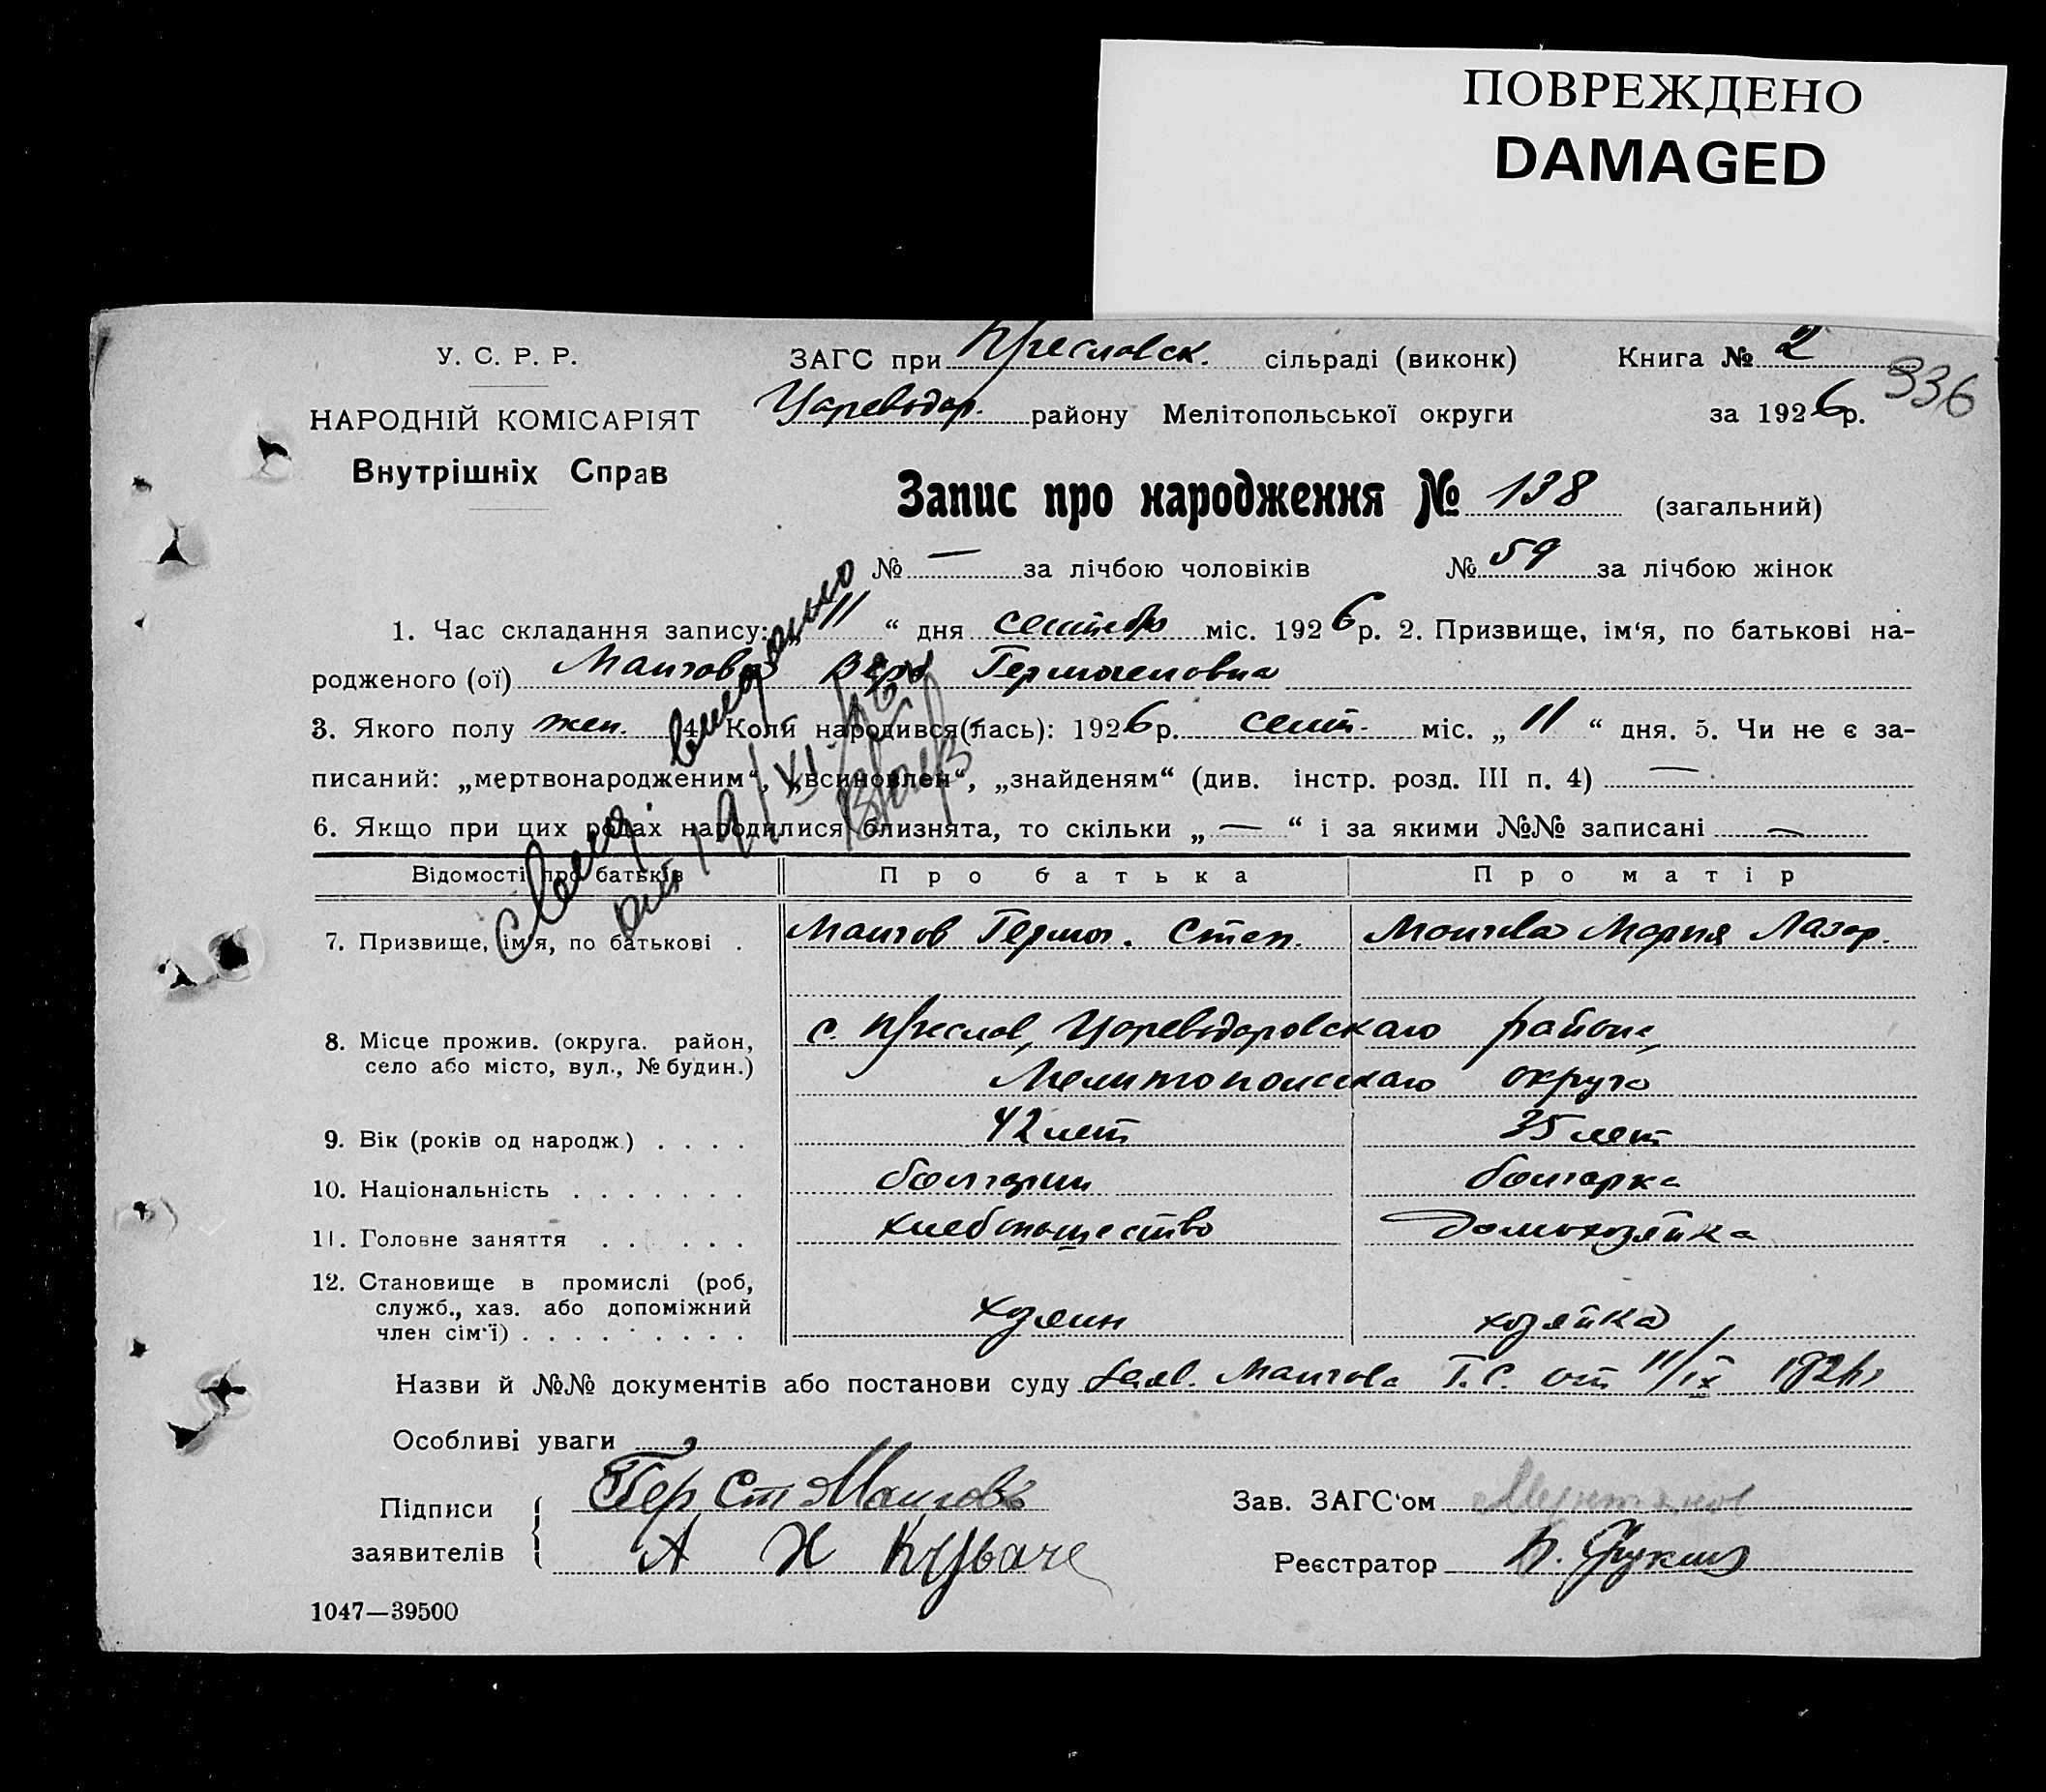 ПОВРЕЖДЕНО
DAMAGED
У. С. Р. Р.
ЗАГС при Преславск. сільраді (виконк)
Книга № 2
336
НАРОДНІЙ КОМІСАРІЯТ
Цареводар. району Мелітопольської округи
за 1926 р.
Внутрішніх Справ
Запис про народження № 138 (загальний)
№ — за лічбою чоловіків № 59 за лічбою жінок
1. Час складання запису: 11 “ дня міс. 1926 р. 2. Призвище, ім‘я, по батькові на-
родженого (ої) Вера Гермогеновна
3. Якого полу жен. 4. Коли народився(лась): 1926 р. сент. міс. „ 11 “ дня. 5. Чи не є за-
писаний: „мертвонародженим“, „всиновлен“, „знайденям“ (див. інстр. розд. III п. 4) —
6. Якщо при цих родах народилися близнята, то скільки „ — “ і за якими №№ записані —
Відомості про батьків
Про батька
Про матір
7. Призвище, ім‘я, по батькові .
Гермог. Степ.
Мария Лазар.
8. Місце прожив. (округа. район,
село або місто, вул., № будин.)
с. Преслав, Цареводаровскаго района,
Мелитопольскаго округа
9. Вік (років од народж.) . . . .
42 лет
35 лет
10. Національність . . . . . . .
болгарин
болгарка
11. Головне заняття . . . . . .
хлебопашество
домохозяйка
12. Становище в промислі (роб,
служб., хаз. або допоміжний
член сім‘ї) . . . . . . . . .
хозяин
хозяйка
Назви й №№ документів або постанови суду Заяв. Г. С. от 11/IX 1926 г
Особливі уваги
Підписи
заявителів
Гер Ст
А Х
Зав. ЗАГС‘ом
Реєстратор
1047—39500